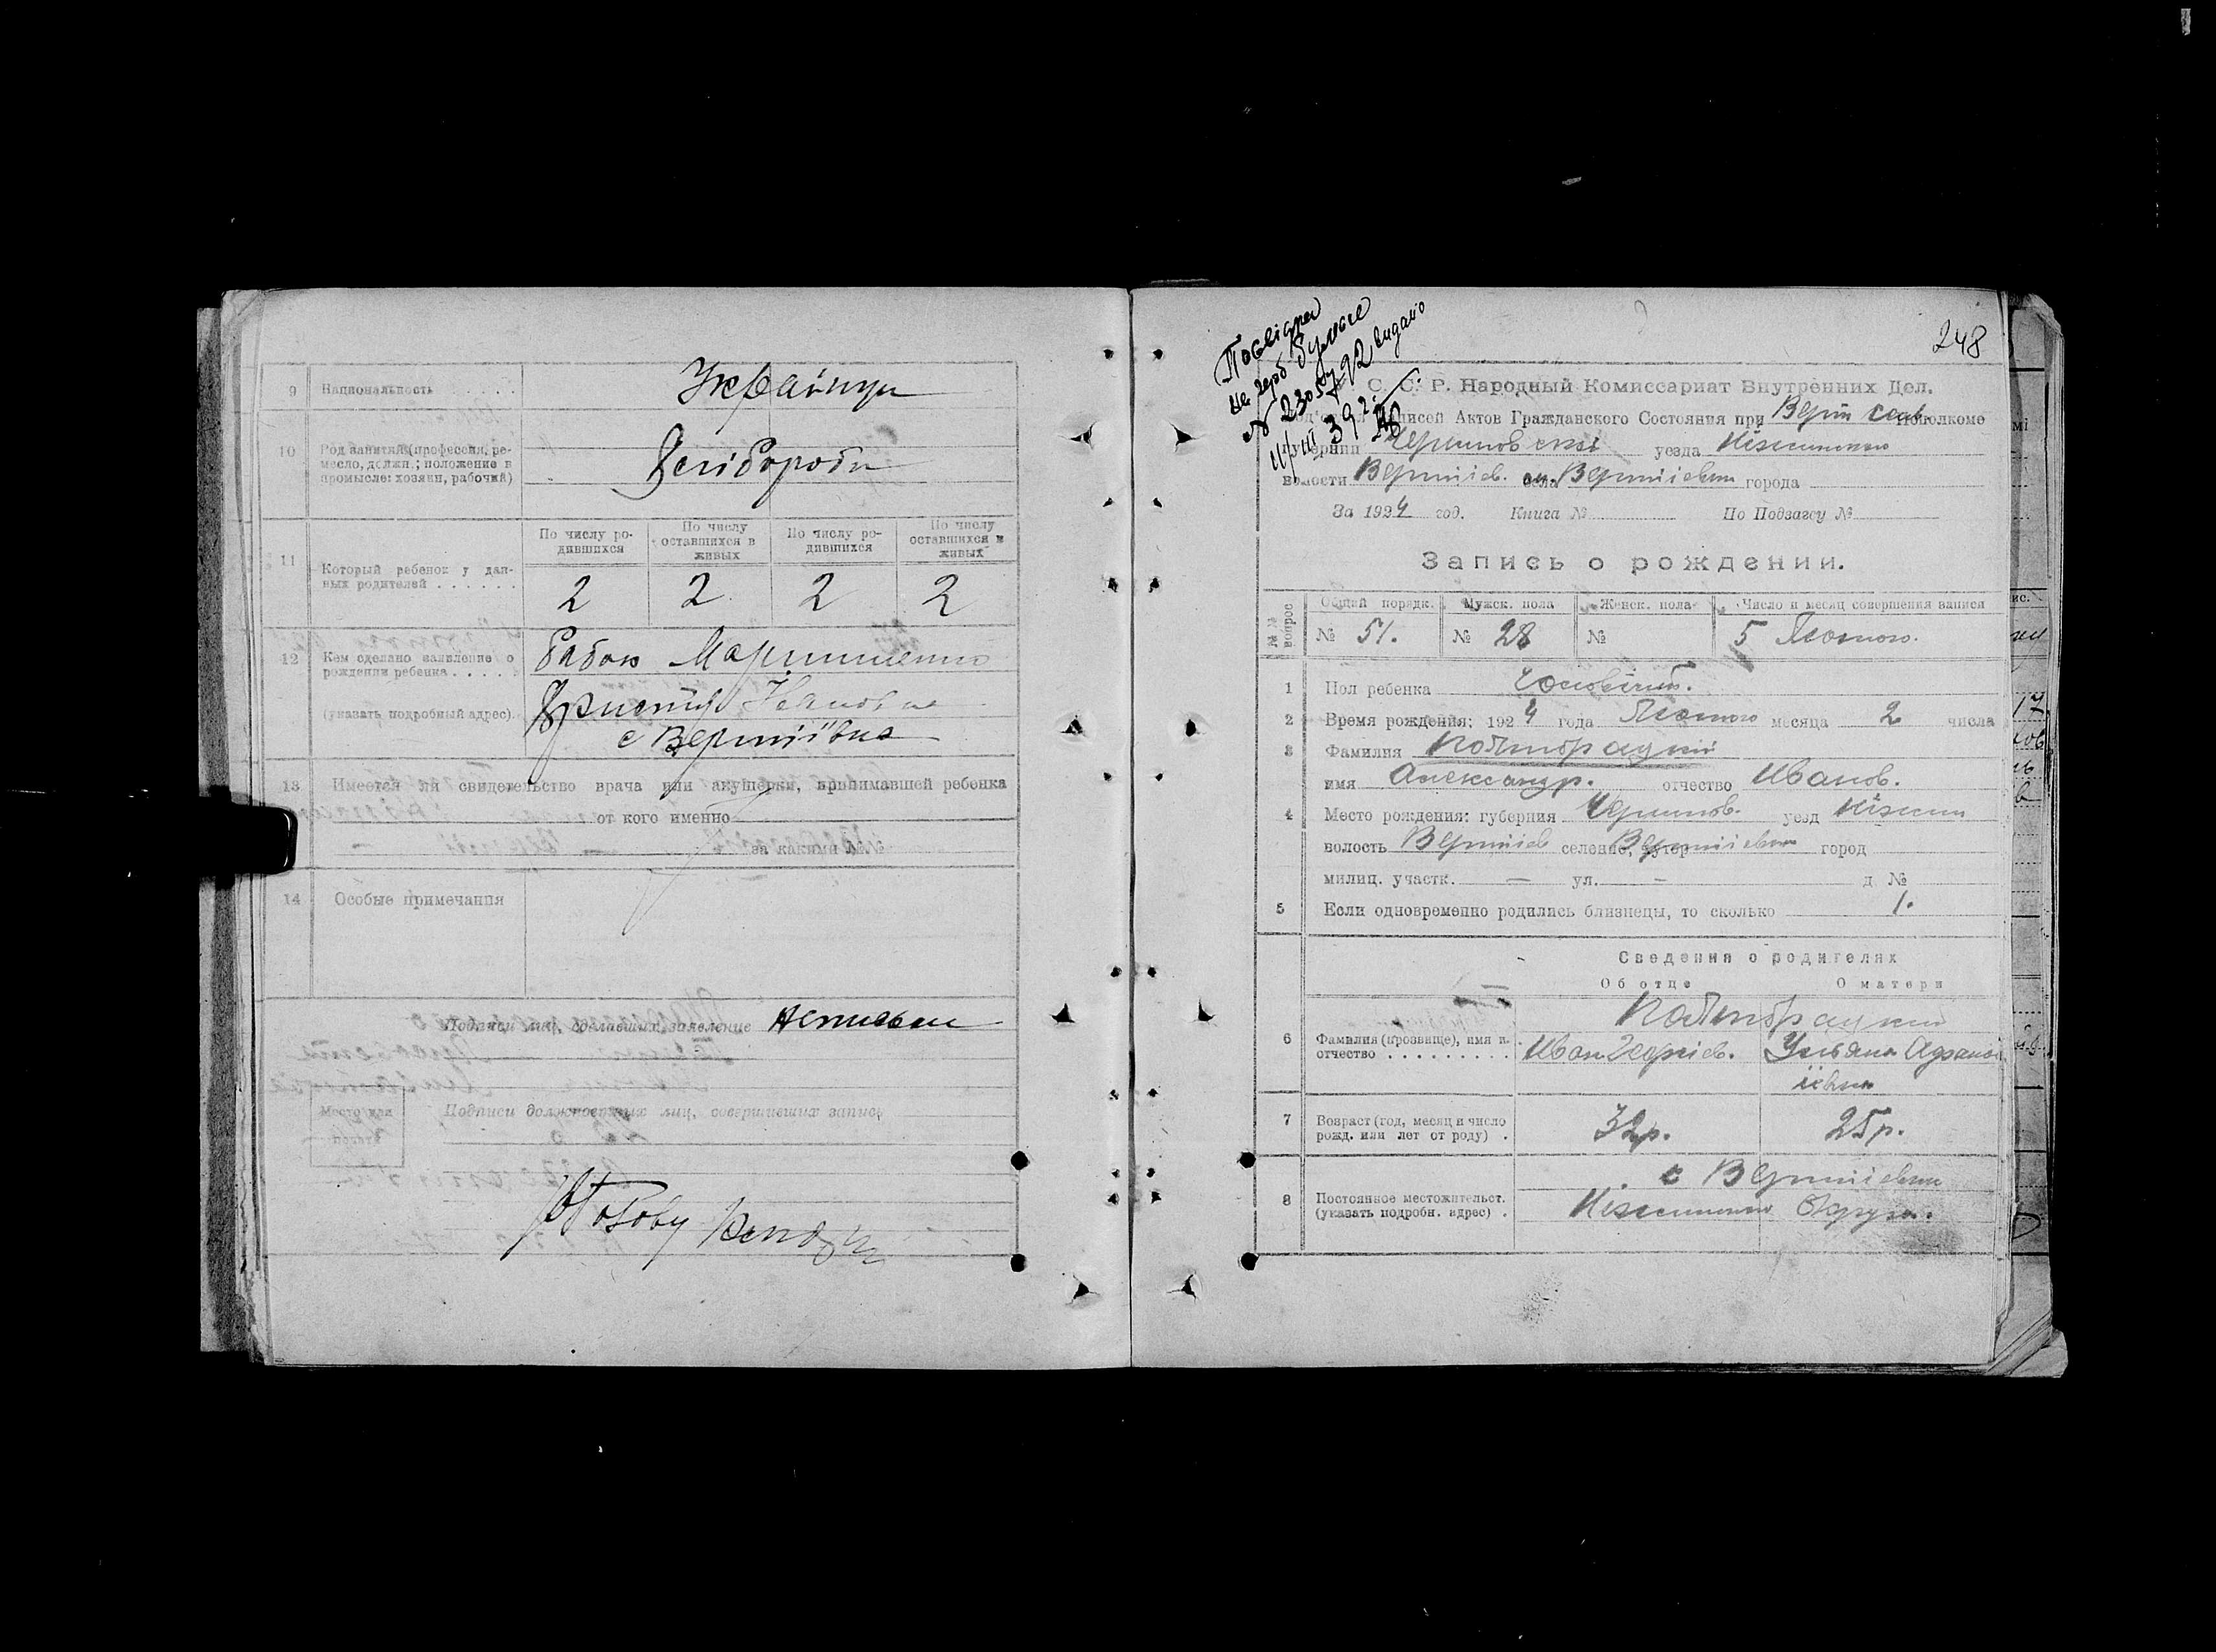 9 Национальность . . . .
Українци
10 Род занятий (профессия, ре-
месло, должн.; положение в
промысле: хозяин, рабочий)
Хліборобы
11 Который ребенок у дан-
ных родителей . . . . . .
По числу ро-
дившихся
По числу
оставшихся в
живых
По числу ро-
дившихся
По числу
оставшихся в
живых
2 2 2 2
12 Кем сделано заявление о
рождении ребенка . . . . .
(указать подробный адрес).
Бабою
Ивановна
с Вертіївка
13 Имеется ли свидетельство врача или акушерки, принимавшей ребенка
от кого именно
за какими №№
14 Особые примечания
Подписи лиц, сделавших заявление
Место для
печати
Подписи должностных лиц, совершивших запись
248
Посвідка
на герб бумаге
№ 230592 видано
С. С. Р. Народный Комиссариат Внутренних Дел.
Записей Актов Гражданского Состояния при Верт сель Исполкоме
губернии Черниговскої уезда Ніженського
волости Вертіїв. села Вертіївки города
За 1924 год. Книга № По Подзагсу №
Запись о рождении.
№№ вопрос
Общий порядк. Мужск. пола Женск. пола Число и месяц совершения записи
№ 51. № 28 № 5 Лютого.
1 Пол ребенка Чоловічий.
2 Время рождения: 1924 года Лютого месяца 2 числа
3 Фамилия
имя Александр. отчество Иванов.
4 Место рождения: губерния Чернигов. уезд Ніжин
волость Вертіїв селение, хутор Вертіївка город
милиц. участк. — ул. — д. №
5 Если одновременно родились близнецы, то сколько 1.
Сведения о родителях
Об отце О матери
6 Фамилия (прозвище), имя и
отчество . . . . . . . . .
Иван Георгіев. Ульяна
7 Возраст (год, месяц и число
рожд. или лет от роду) .
32р. 25р.
8 Постоянное местожительст.
(указать подробн. адрес) .
с Вертіївки
Ніженського Округа.